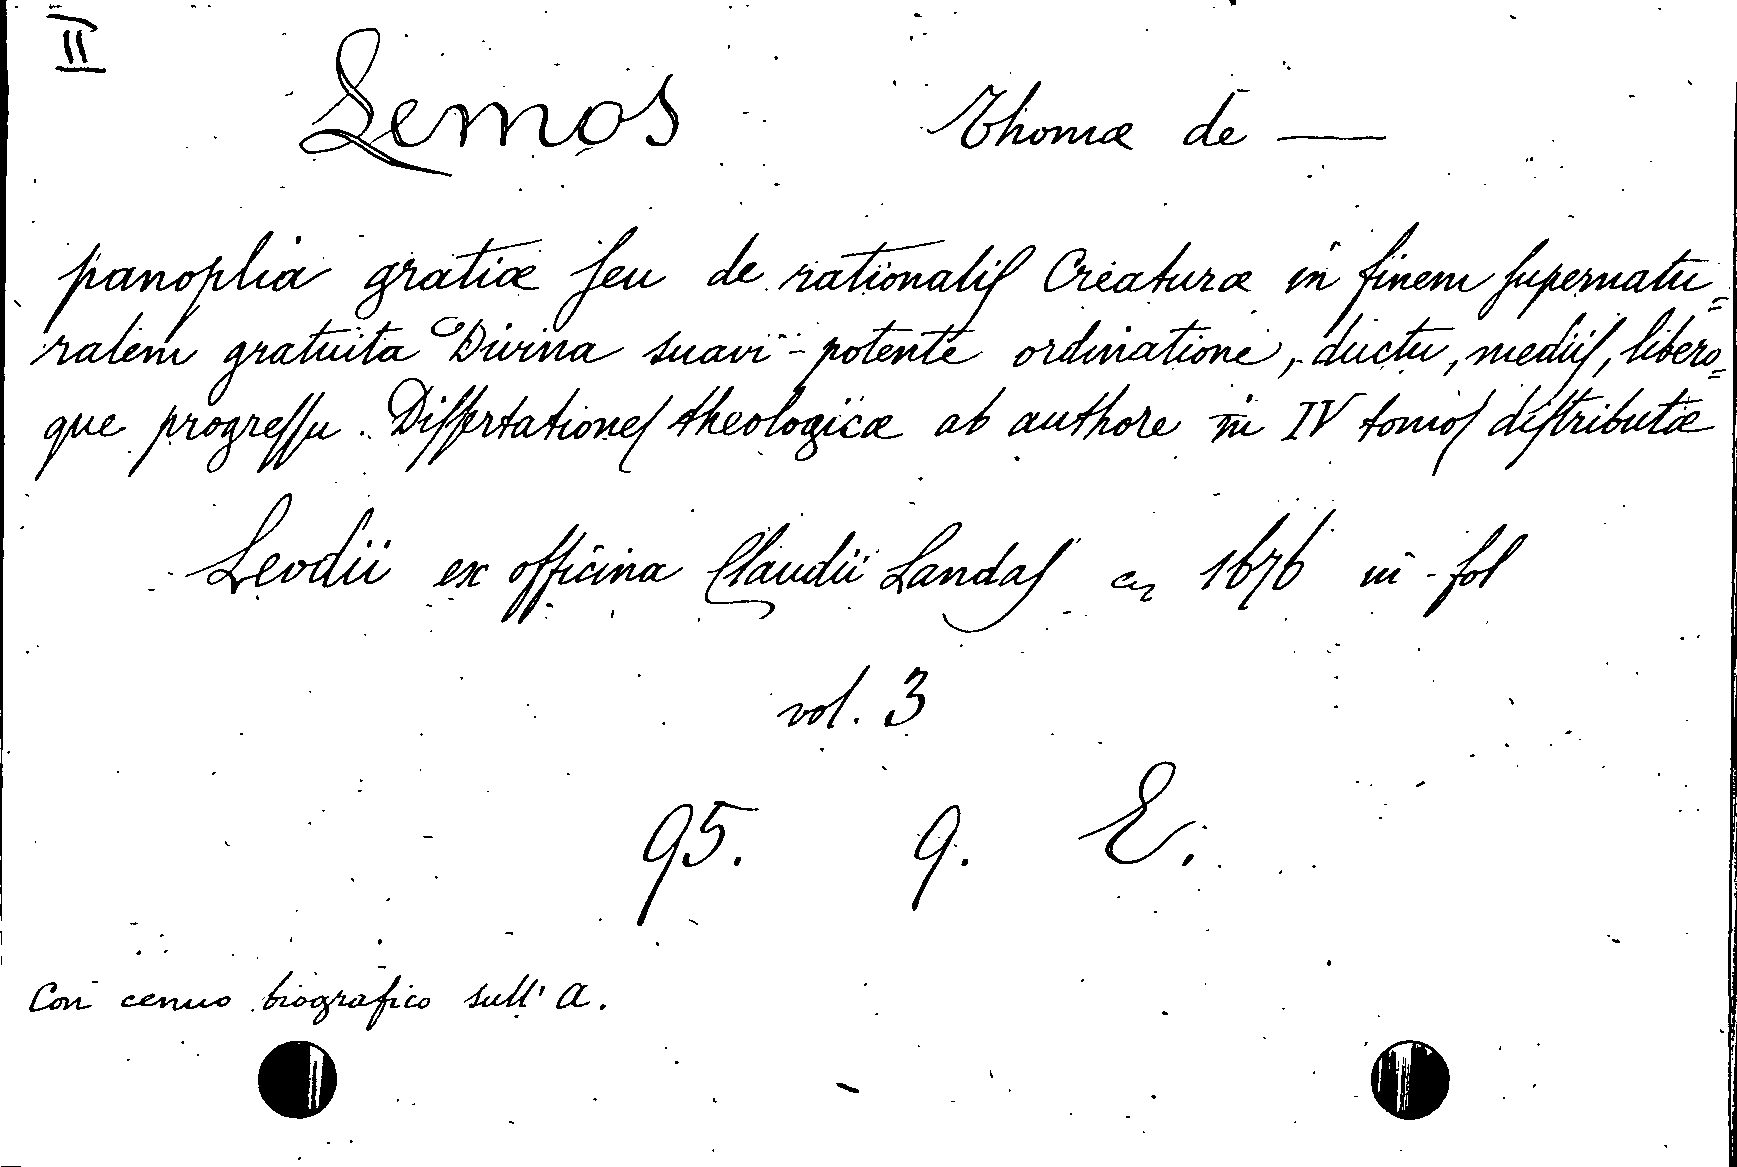 II
Lemos Thomæ de —
panoplia gratiæ seu de rationalis Creaturæ in finem supernatu=
ralem gratuita Divina suavi-potente ordinatione, ductu, mediis, libero=
que progressu. Dissertationes theologicæ ab authore in IV tomos distributæ
Leodii ex officina Claudii Landas 1676 in-fol
vol. 3
95. 9. E.
Con cenno biografico sull' A.